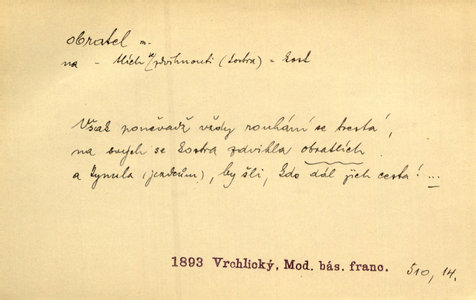 obratel m.
na - -tlích se zdvihnouti (kostra) = kost
Však poněvadž vždy rouhání se trestá,
na svých se kostra zdvihla obratlích
a kynula (jezdcům), by šli, kdo dál jich cesta! ...
1893 Vrchlický, Mod. bás. franc. 510, 14.